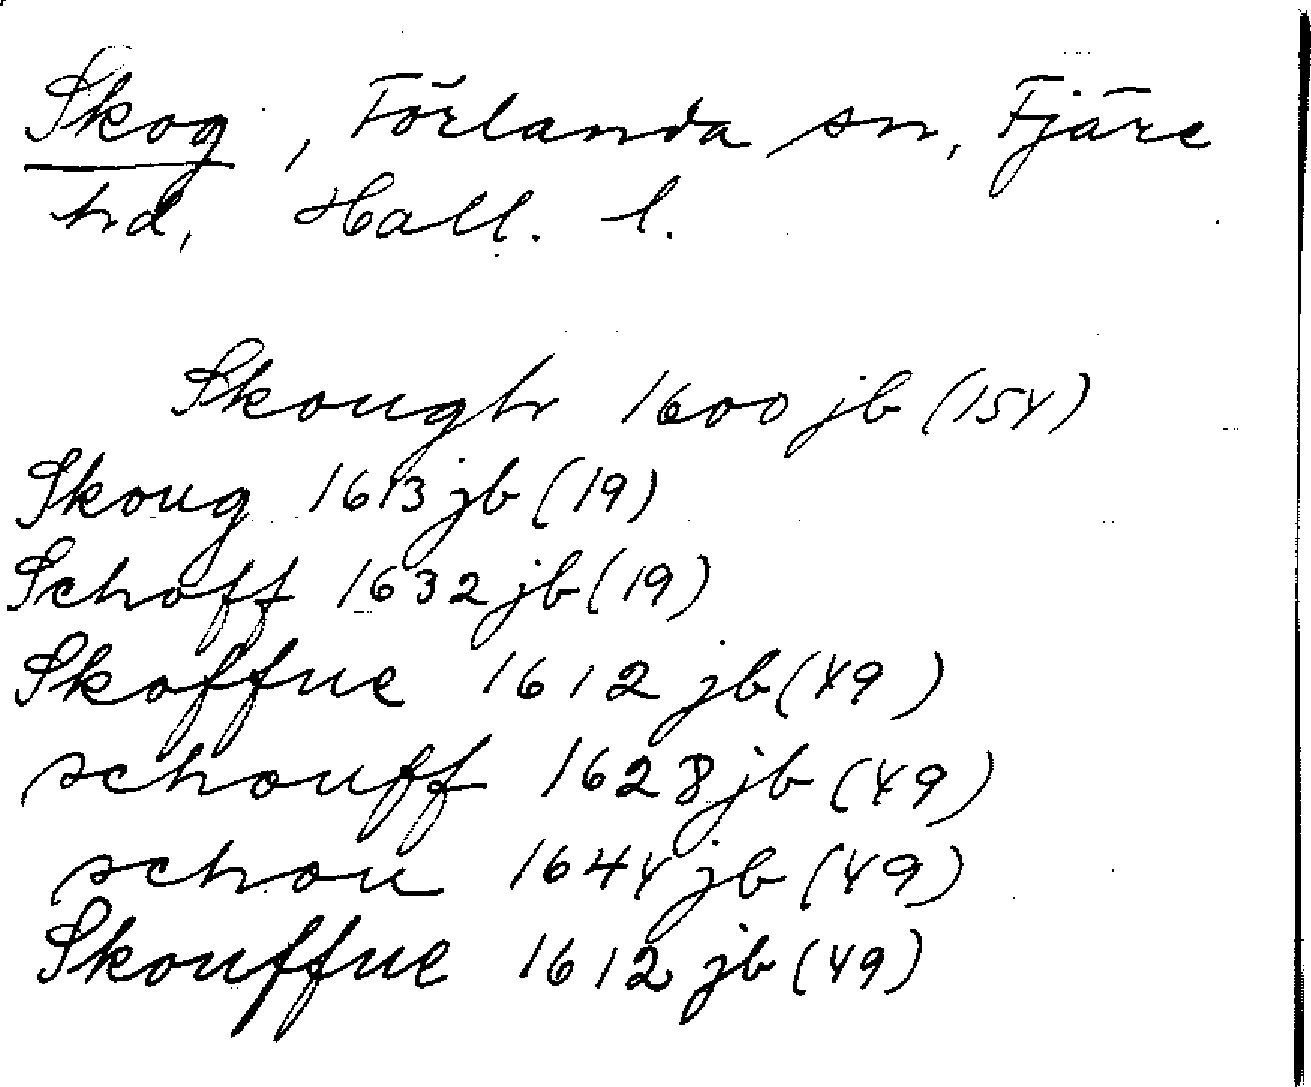 Skog, Förlanda sn, Fjäre
hd, Hall. l.
Skough 1600 jb (154)
Skoug 1613 jb (19)
Schoff 1632 jb (19)
Skoffue 1612 jb (49)
schouff 1628 jb (49)
schou 1644 jb (49)
Skouffue 1612 jb (49)